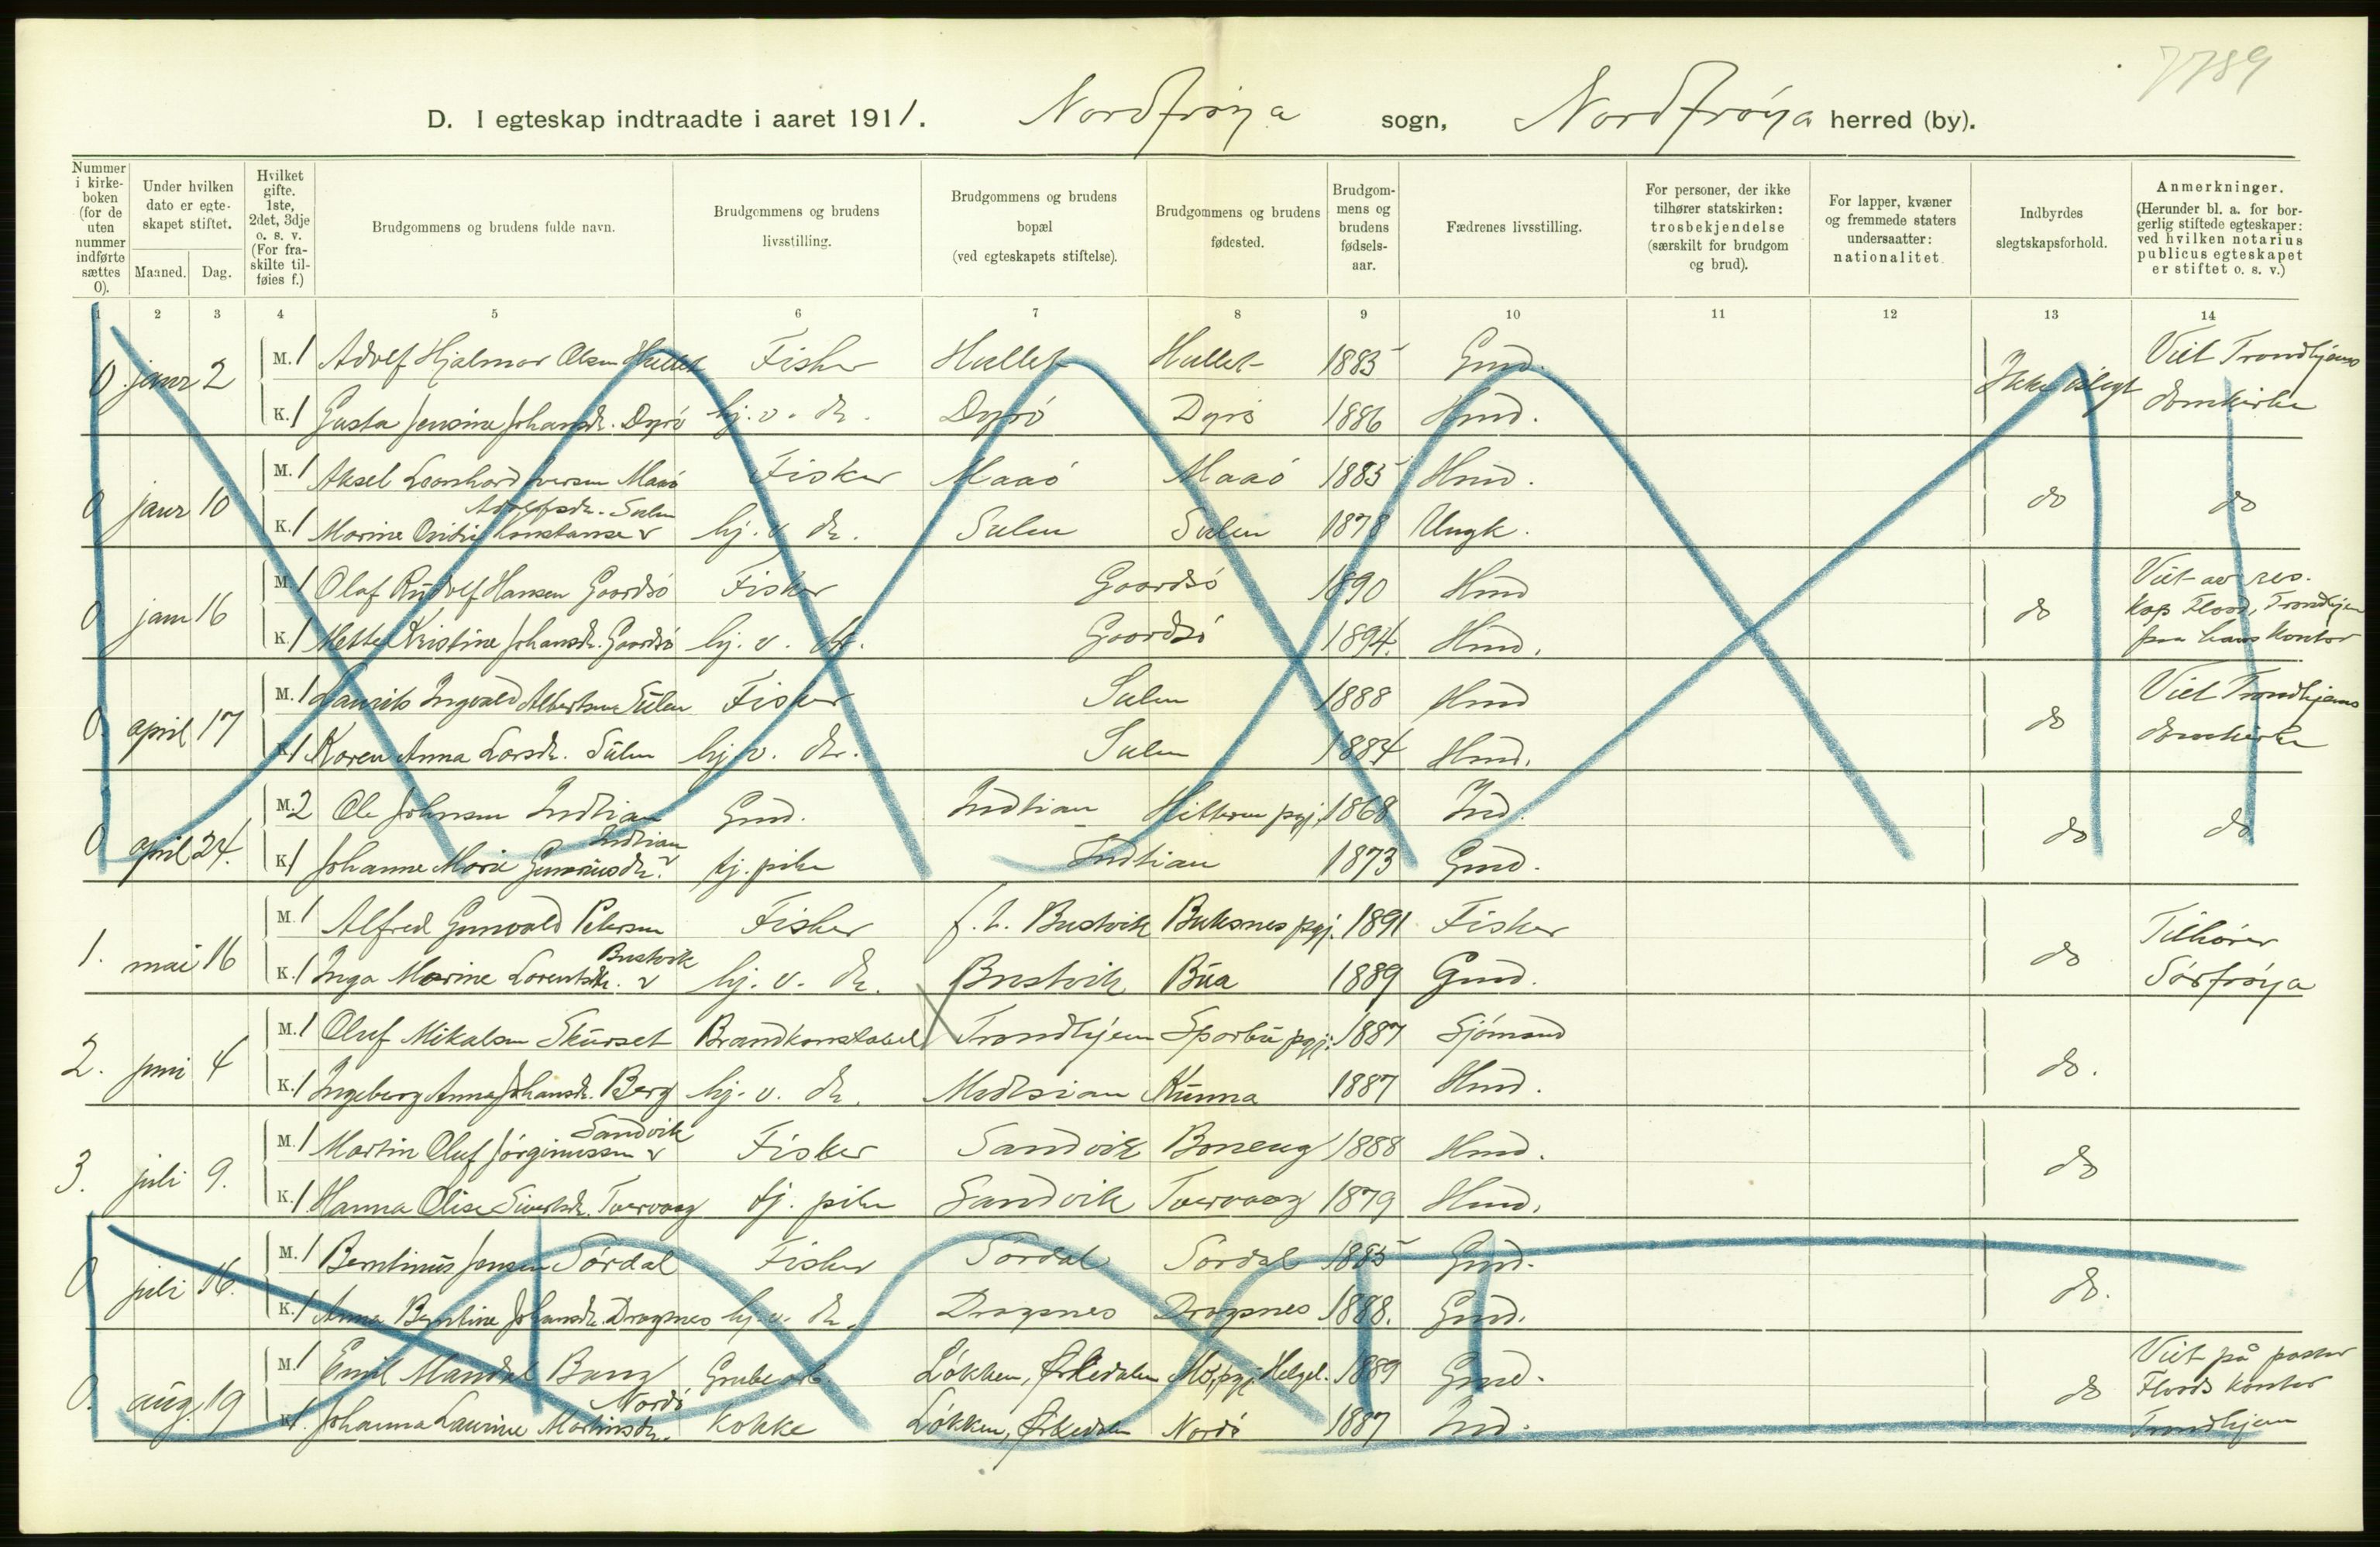 7789
D. I egteskap indtraadte i aaret 1911. Nordfröya sogn, Nordfröya herred (by).
Nummer i kirke-boken (for de uten nummer indførte sættes 0).
Under hvilken dato er egte-skapet stiftet.
Maaned. Dag.
Hvilket gifte. 1ste, 2det, 3dje o. s. v. (For fra-skilte til-føies f.)
Brudgommens og brudens fulde navn.
Brudgommens og brudens livsstilling.
Brudgommens og brudens bopæl (ved egteskapets stiftelse).
Brudgommens og brudens fødested.
Brudgom-mens og brudens fødsels-aar.
Fædrenes livsstilling.
For personer, der ikke tilhører statskirken: trosbekjendelse (særskilt for brudgom og brud).
For lapper, kvæner og fremmede staters undersaatter: nationalitet.
Indbyrdes slegtskapsforhold.
Anmerkninger. (Herunder bl. a. for bor-gerlig stiftede egteskaper: ved hvilken notarius publicus egteskapet er stiftet o. s. v.)
1 2 3 4 5 6 7 8 9 10 11 12 13 14
M. 1 Adolf Hjalmar Olsen Hallet Fisker Hallet Hallet 1885 Gmd. Viet Trondhjems
0 janr 2 Ikke i slegt
K. 1 Gusta Jensine Johansdr. Dyrö hj. v. dr. Dyrö Dyrö 1886 Hmd. domkirke
M. 1 Aksel Leonhard Iversen Maaö Fisker Maaö Maaö 1885 Hmd.
0 janr 10 do do
Adolfsdr. Sulen
K. 1 Marine Konstanse v hj. v. dr. Sulen Sulen 1878 Ungk.
M. 1 Olaf Rudolf Hansen Gaardsö Fisker Gaardsö 1890 Hmd Viet av res.
0 janr 16 do kap Flood, Trondhjem
K. 1 Mette Kristine Johansdr. Gaardsö hj. v. dr. Gaardsö 1894. Hmd. paa hans kontor
M. 1 Laurits Ingvald Albertsen Sulen Fisker Sulen 1888 Hmd Viet Trondhjems
0. april 17 do
K. 1 Karen Anna Larsdr. Sulen hj. v. dr. Sulen 1884 Hmd. domkirke
M. 2 Ole Johnsen Indtian Gmd. Indtian Hitteren pgj. 1868 Ind.
0 april 24. do do
Indtian
K. 1 Johanne Marie Gunnarusdr. v tj. pike Indtian 1873 Gmd.
M. 1 Alfred Gunvald Petersen Fisker f. t. Bustvik Buksnes pgj. 1891 Fisker Tilhörer
1. mai 16 do
Bustvik
K. 1 Inga Marine Lorentsdr. v hj. v. dr. Bustvik Bua 1889 Gmd. Sörfröya
M. 1 Oluf Mikalsen Skurset Brandkonstabel Trondhjem Sparbu pgj. 1887 Sjömand
2. juni 4 do.
K. 1 Ingeborg Anna Johansdr. Berg hj. v. dr. Medsian Kunna 1887 Hmd.
Sandvik
M. 1 Martin Oluf Jörginussen v Fisker Sandvik Boneng 1888 Hmd.
3. juli 9. do
K. 1 Hanna Elise Sivertsdr. Tuervaag tj. pike Sandvik Tuervaag 1879 Hmd.
M. 1 Berntinus Jensen Sördal Fisker Sördal Sördal 1885 Gmd.
0 juli 16. do.
K. 1 Anna Berntine Johansdr. Dragsnes hj. v. dr. Dragsnes Dragsnes 1888. Gmd.
M. 1 Emil Mandal Bang Grubearb. Løkken, Ørkedalen Mo, pgj. Helgel. 1889 Gmd. Viet på pastor
0. aug. 19 do Floods kontor
Nordö
K. 1. Johanna Laurine Martinsdr. Kokke Løkken, Ørkedalen Nordö 1887 Ind. Trondhjem